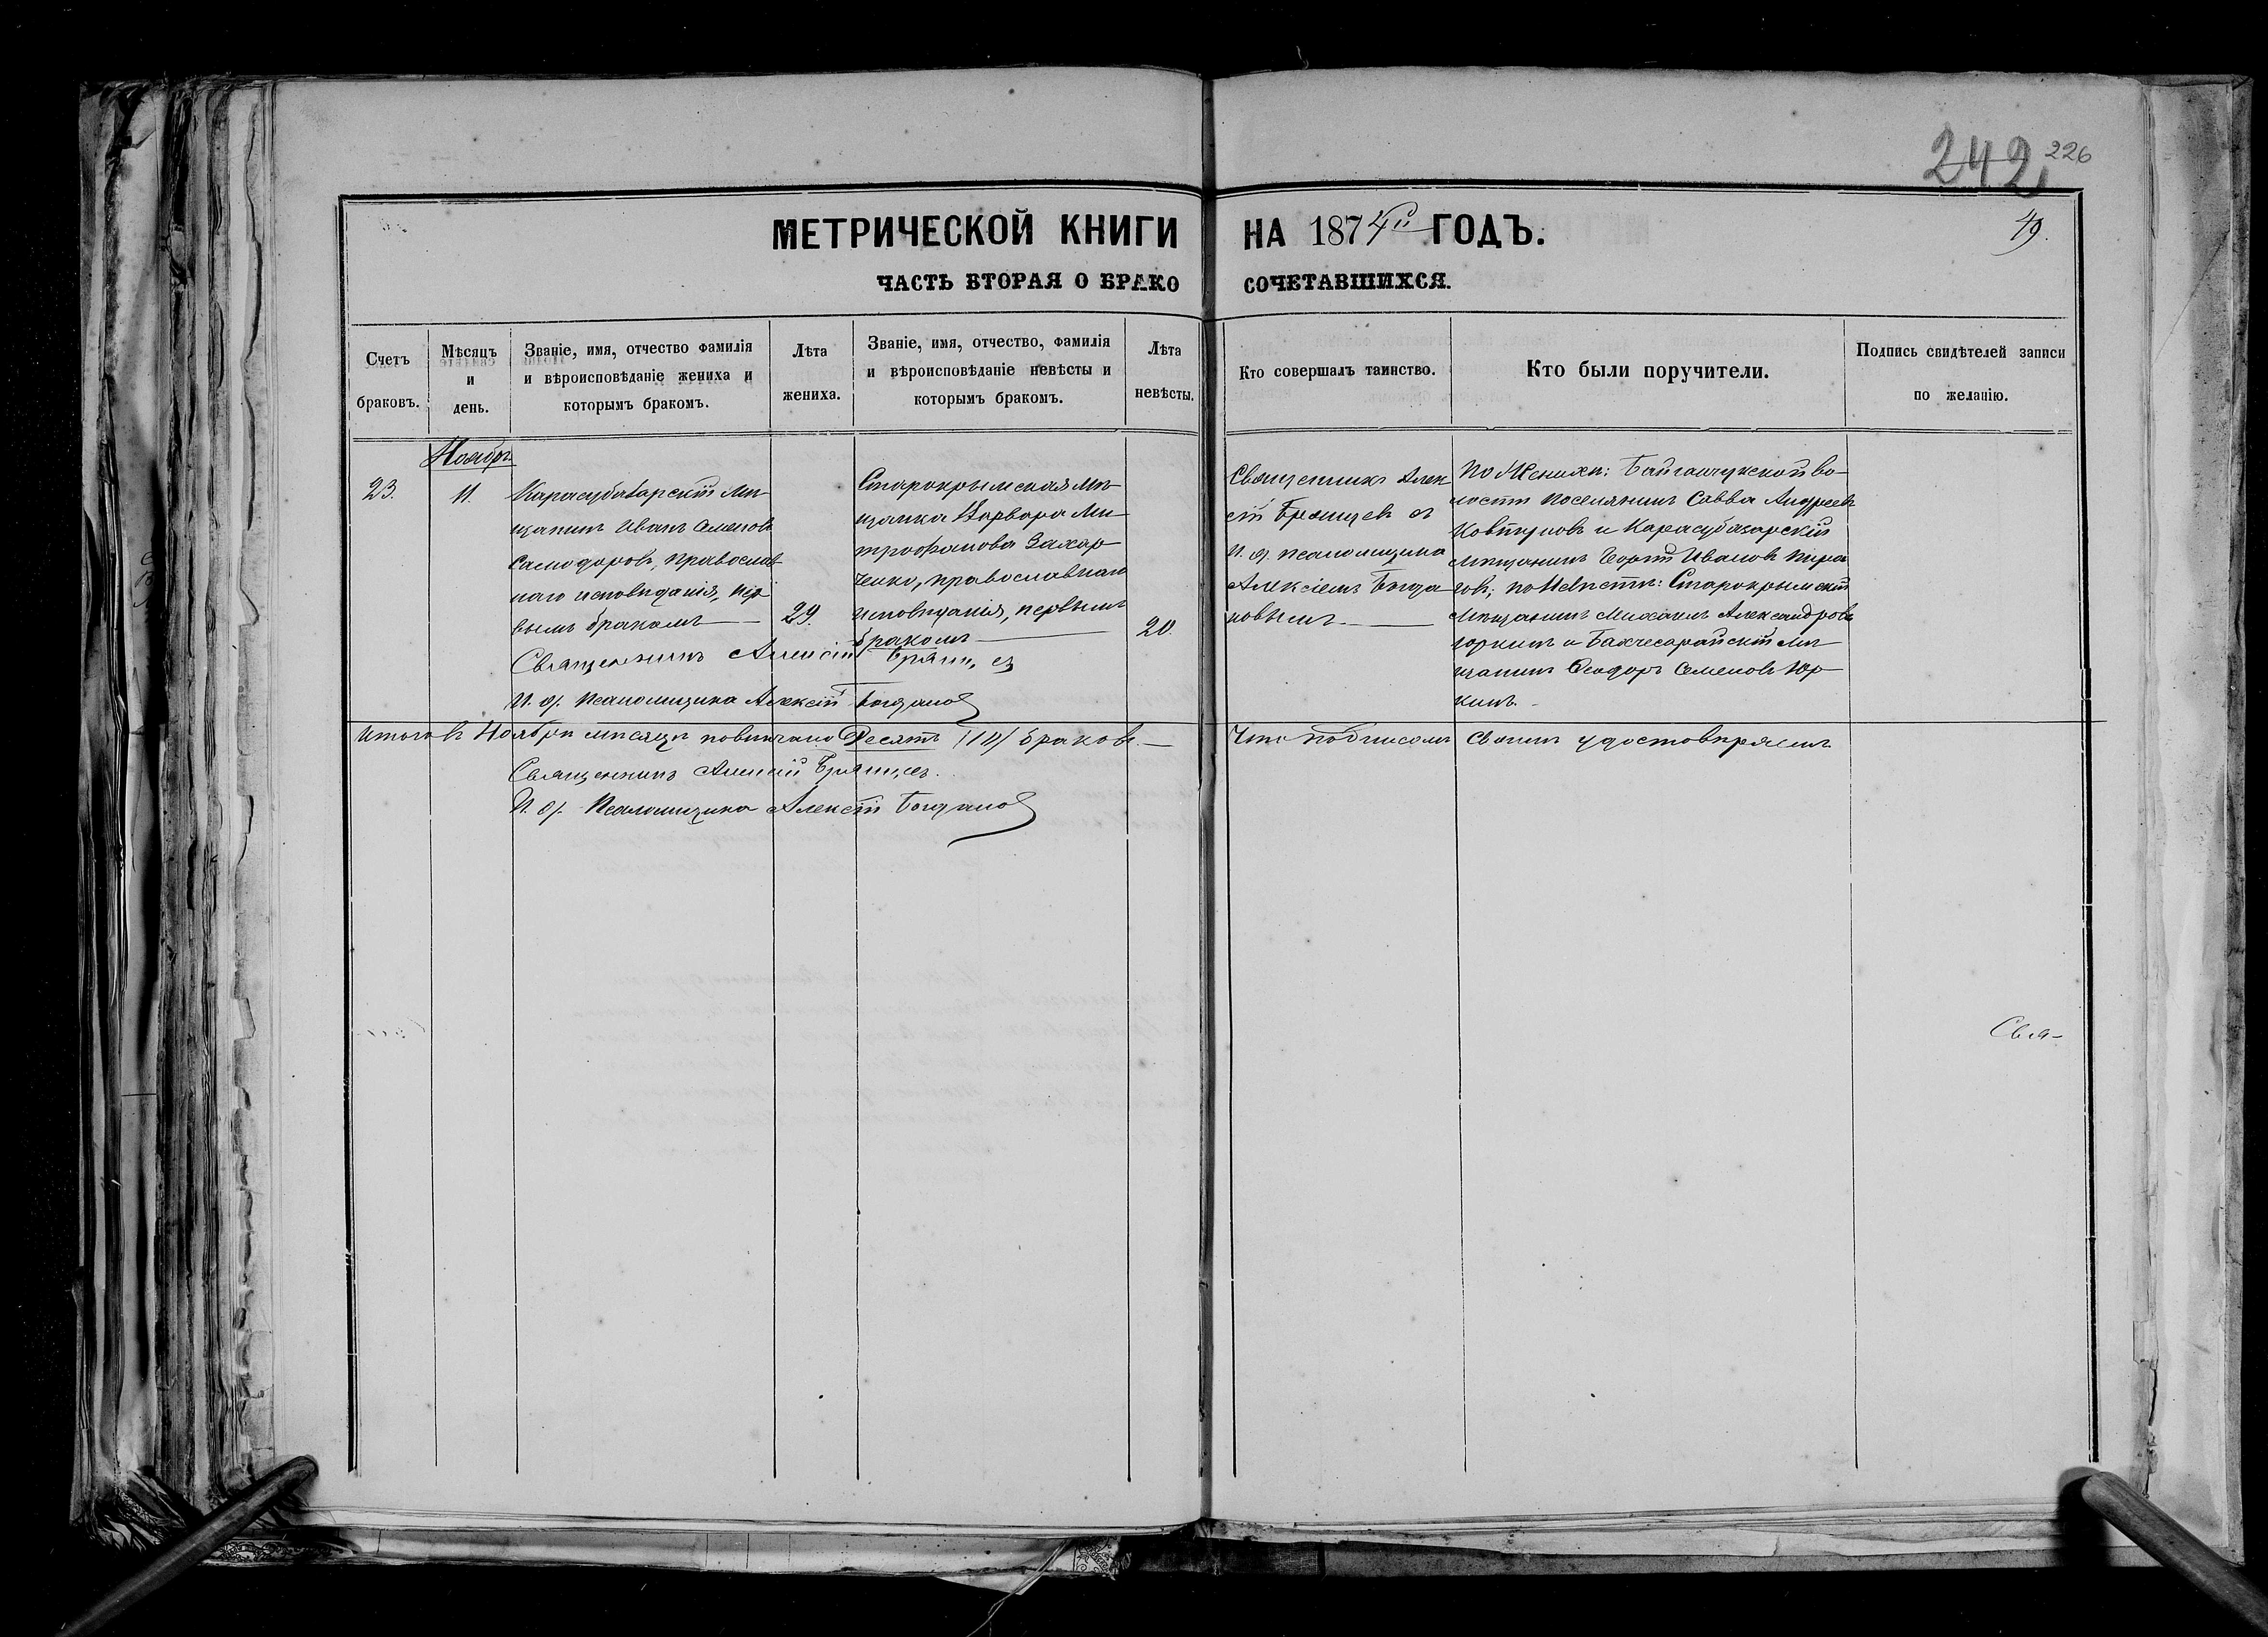 242 226
МЕТРИЧЕСКОЙ КНИГИ НА 1874й ГОДЪ.
49.
ЧАСТЬ ВТОРАЯ О БРАКО СОЧЕТАВШИХСЯ.
Счетъ
браковъ.
Мѣсяцъ
и
день.
Званіе, имя, отчество фамилія
и вѣроисповѣданіе жениха и
которымъ бракомъ.
Лѣта
жениха.
Званіе, имя, отчество, фамилія
и вѣроисповѣданіе невѣсты и
которымъ бракомъ.
Лѣта
невѣсты.
Кто совершалъ таинство.
Кто были поручители.
Подпись свидѣтелей записи
по желанію.
Ноябрь
23.
11.
Карасубазарскій мѣ-
щанинъ Иванъ Семеновъ
Самодоровъ, православ
наго исповѣданія, пер
вымъ бракомъ
29.
Старокрымская мѣ-
щанка Варвара Ми-
трофанова Захар
ченко, православнаго
исповѣданія, первымъ
бракомъ
20.
Священникъ Алек
сій Брянцев съ
И. д. псаломщика
Алексіемъ Богда
новымъ
По Женихѣ: волости
поселянинъ Савва Андреевъ
Ковтуновъ и Карасубазарскій
мѣщанинъ Георгій Ивановъ Пира
говъ; по Невѣстѣ: Старокрымскій
мѣщанинъ Михаилъ Александровъ
Юркинъ и Бахчесарайскій мѣ-
щанинъ Ѳеодоръ Семеновъ Юр
кинъ.
Священникъ Алексій Брянцев
И. д. Псаломщика Алексій Богданов
Итого въ Ноябрѣ мѣсяцѣ повѣнчано Десять /10/ браковъ.— Что подписомъ своимъ удостовѣряемъ
Священникъ Алексій Брянцев.
И. д. Псаломщика Алексій Богданов
Свя-